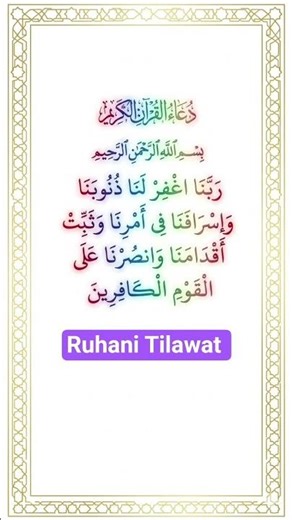 دُعَاءُ الْقُرْآنِ الْكَرِيْمِ
بِسْمِ اللَّهِ الرَّحْمَٰنِ الرَّحِيمِ
رَبَّنَا اغْفِرْ لَنَا ذُنُوبَنَا
وَإِسْرَافَنَا فِي أَمْرِنَا وَثَبِّتْ
أَقْدَامَنَا وَانصُرْنَا عَلَى
الْقَوْمِ الْكَافِرِينَ
Ruhani Tilawat